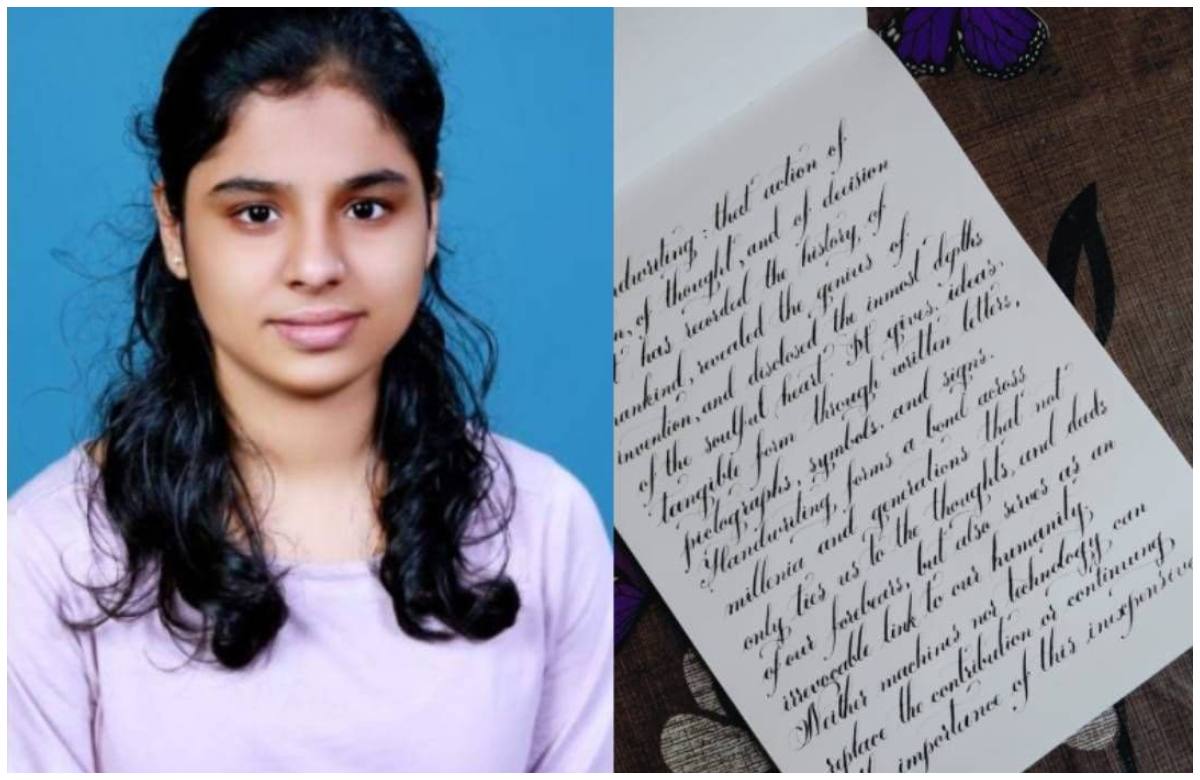 dwriting : that action of
n, of thought, and of decision
t has recorded the history of
ankind, revealed the genius of
invention, and disclosed the inmost depths
of the soulful heart. It gives ideas
tangible form through written letters,
pictographs, symbols, and signs.
Handwriting forms a bond across
millenia and generations that not
only ties us to the thoughts, and deeds
of our forebears, but also serves as an
irrevocable link to our humanity.
Neither machines nor technology can
replace the contribution or continuing
importance of this inexpensive